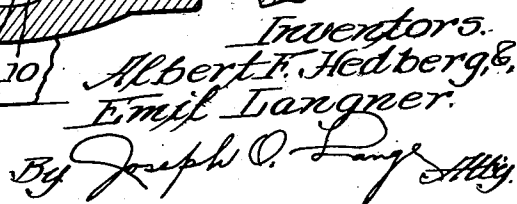 Inventors.
10
Albert F. Hedberg, &,
Emil Langner.
By Joseph O. Lange Atty.